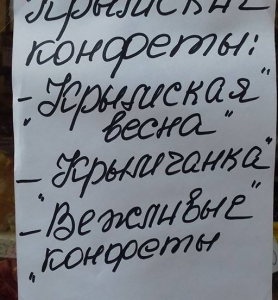 Крымские
конфеты:
- "Крымская
весна"
- "Крымчанка"
- "Вежливые"
конфеты